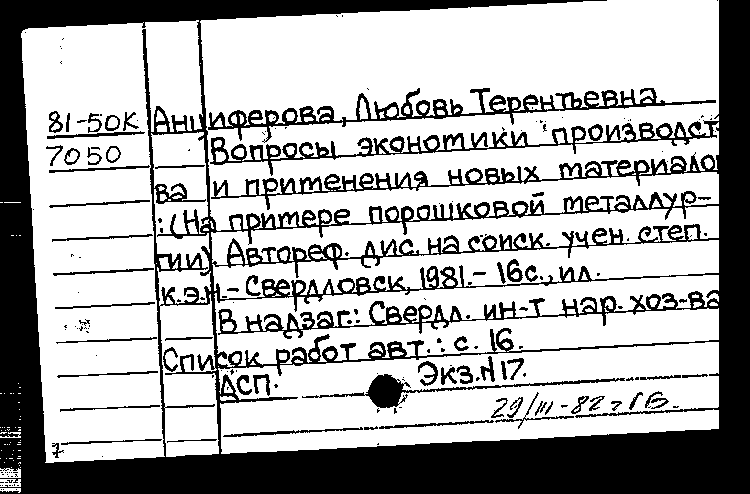 81-50К Анциферова, Любовь Терентьевна.
7050 Вопросы экономики производст-
ва и применения новых материало
:(На примере порошковой металлур-
гии). Автореф. дис. на соиск. учен. степ.
к.э.н.- Свердловск, 1981.- 16с., ил.
В надзаг.: Свердл. ин-т нар. хоз-ва
Список работ авт.: с. 16.
ДСП. Экз.N17.
29/III-82г
7